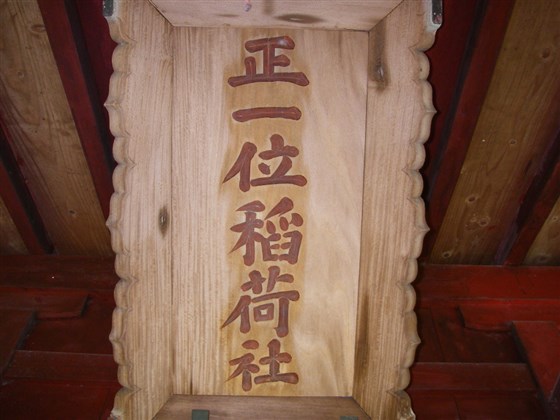 正一位稲荷社